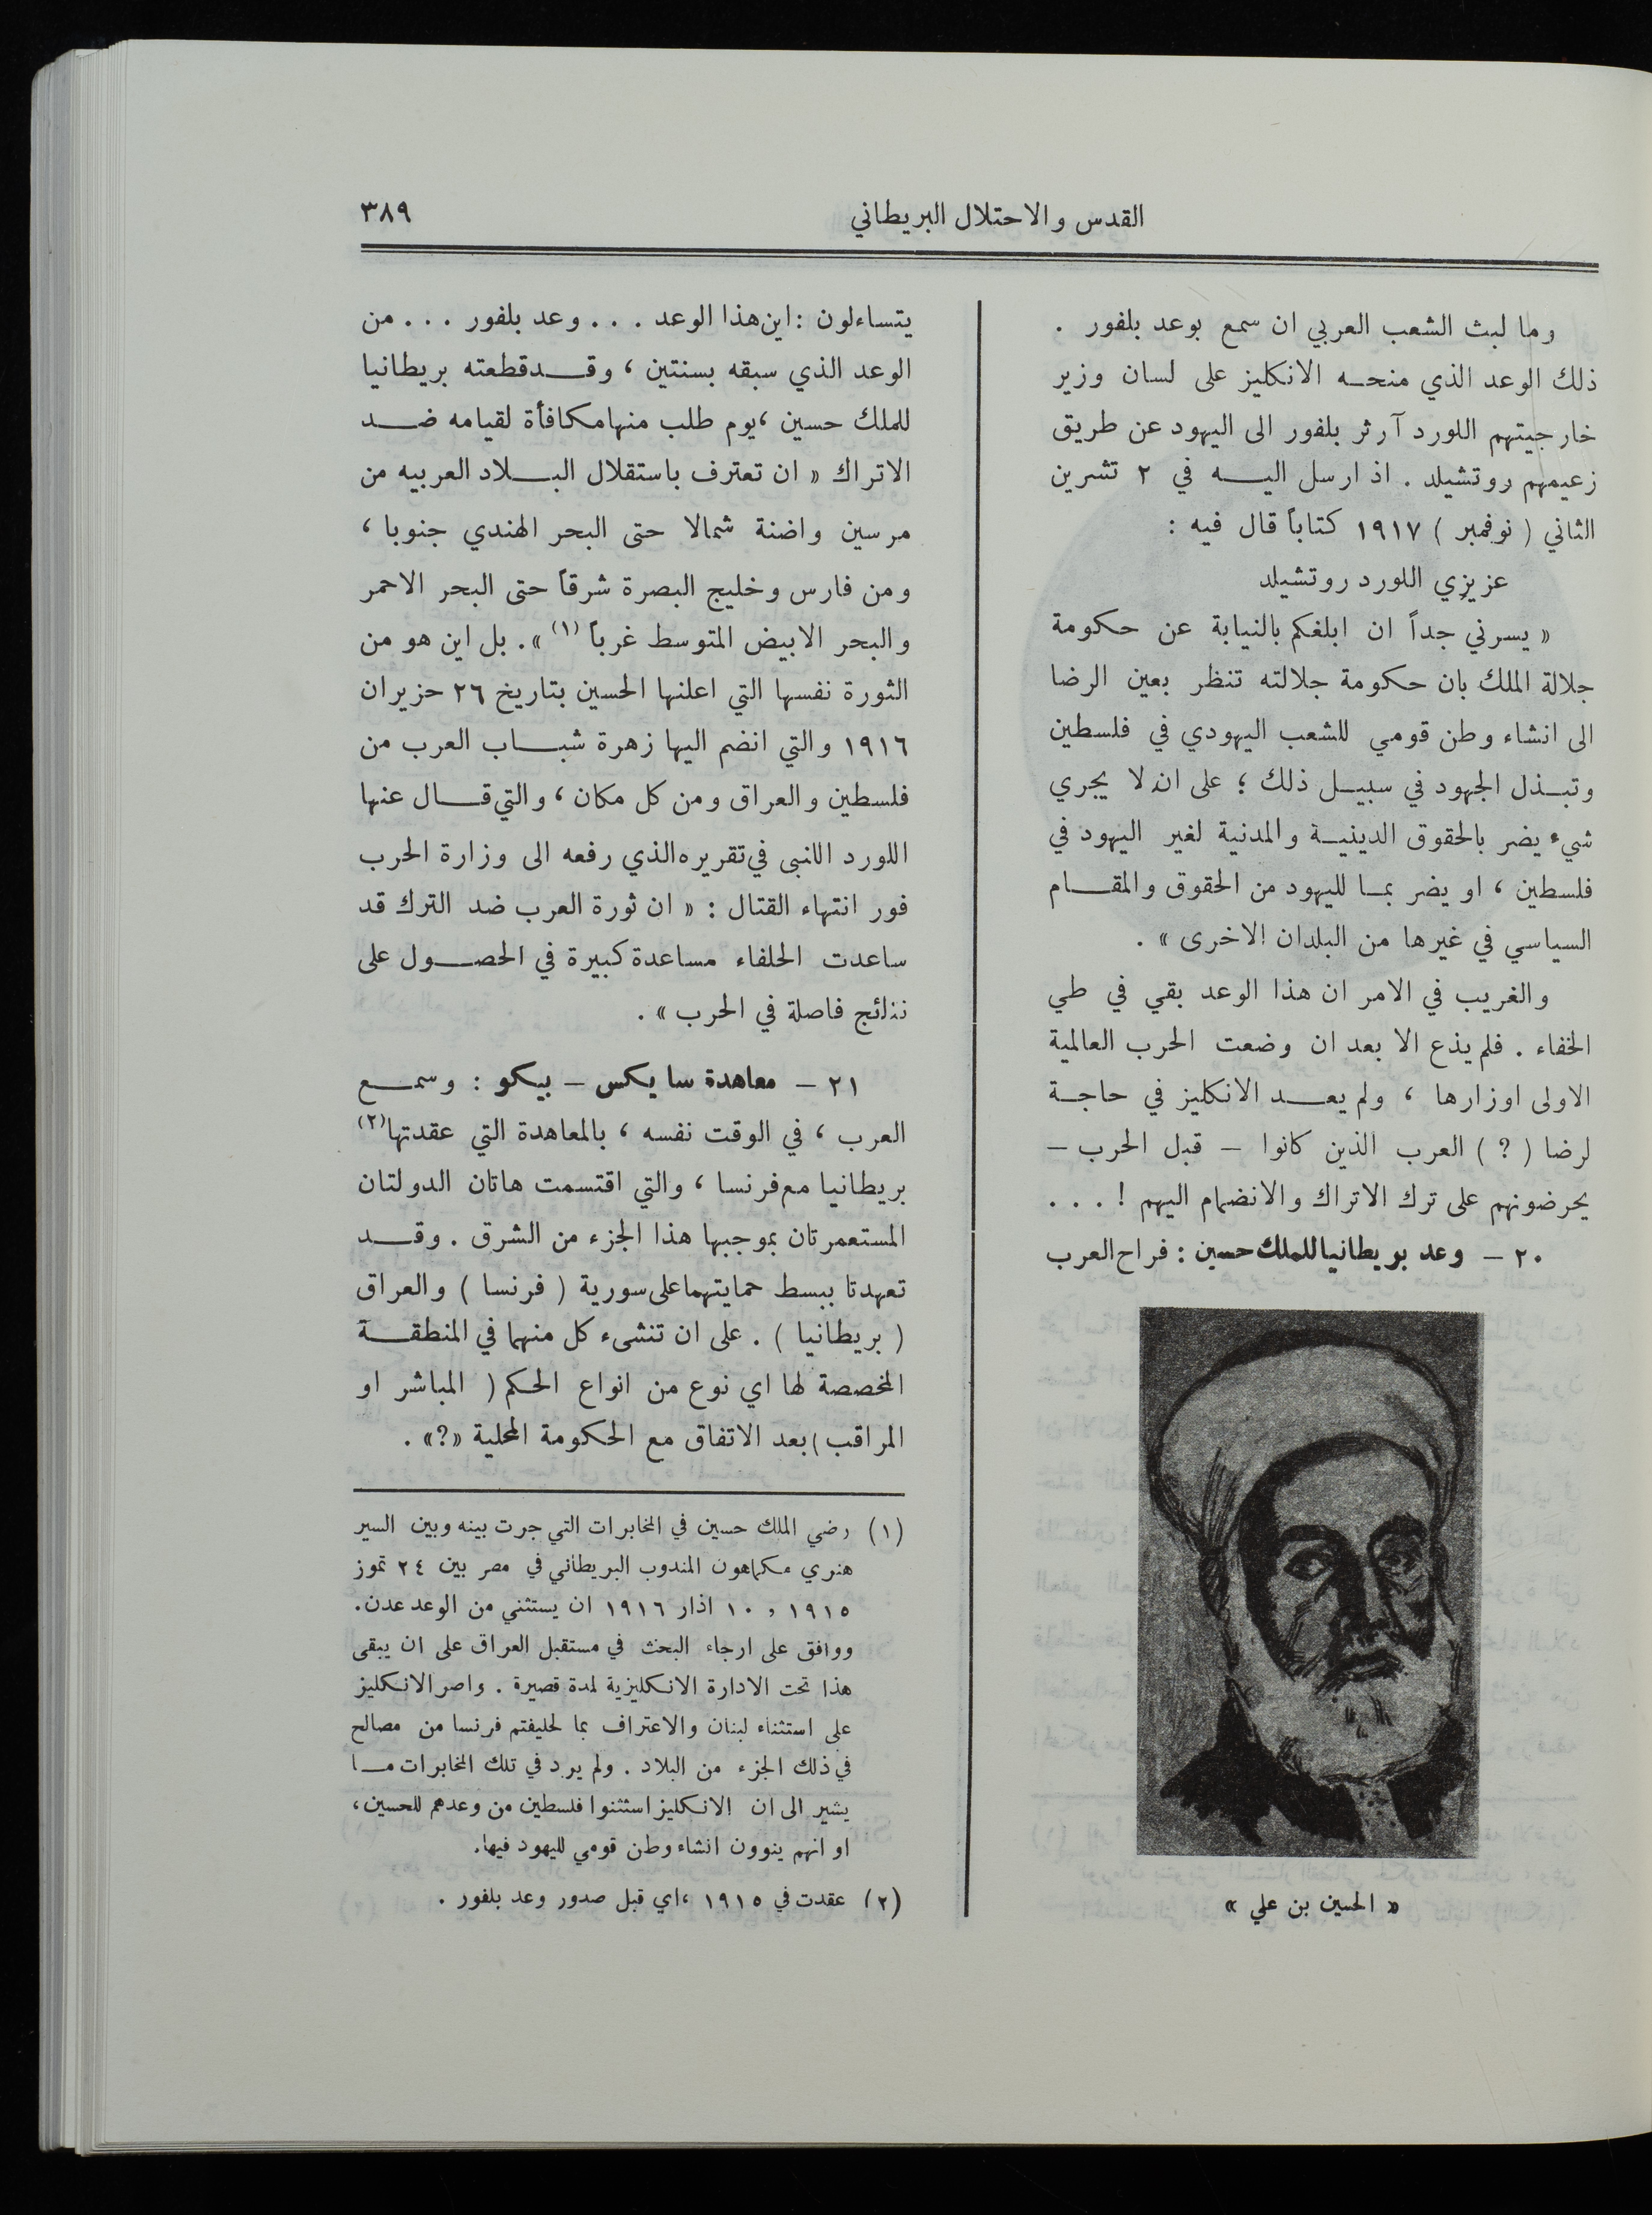 القدس والاحتلال البريطاني
٣٨٩
وما لبث الشعب العربي ان سمع بوعد بلفور .
ذلك الوعد الذي منحه الانكليز على لسان وزير
خارجيتهم اللورد آرثر بلفور الى اليهود عن طريق
زعيمهم روتشيلد . اذ ارسل اليه في ٢ تشرين
الثاني ( نوفمبر ) ١٩١٧ كتاباً قال فيه :
عزيزي اللورد روتشيلد
« يسرني جداً ان ابلغكم بالنيابة عن حكومة
جلالة الملك بان حكومة جلالته تنظر بعين الرضا
الى انشاء وطن قومي للشعب اليهودي في فلسطين
وتبذل الجهود في سبيل ذلك ؛ على ان لا يجري
شيء يضر بالحقوق الدينية والمدنية لغير اليهود في
فلسطين ، او يضر بما لليهود من الحقوق والمقام
السياسي في غيرها من البلدان الاخرى » .
والغريب في الامر ان هذا الوعد بقي في طي
الخفاء . فلم يذع الا بعد ان وضعت الحرب العالمية
الاولى اوزارها ، ولم يعد الانكليز في حاجة
لرضا ( ? ) العرب الذين كانوا – قبل الحرب –
يحرضونهم على ترك الاتراك والانضمام اليهم ! . . .
٢٠ – وعد بريطانيا للملك حسين : فراح العرب
« الحسين بن علي »
يتساءلون : اين هذا الوعد . . . وعد بلفور . . . من
الوعد الذي سبقه بسنتين ، وقد قطعته بريطانيا
للملك حسين ، يوم طلب منها مكافأة لقيامه ضد
الاتراك « ان تعترف باستقلال البلاد العربيه من
مرسين واضنة شمالا حتى البحر الهندي جنوبا ،
ومن فارس وخليج البصرة شرقاً حتى البحر الاحمر
والبحر الابيض المتوسط غرباً (١) » . بل اين هو من
الثورة نفسها التي اعلنها الحسين بتاريخ ٢٦ حزيران
١٩١٦ والتي انضم اليها زهرة شباب العرب من
فلسطين والعراق ومن كل مكان ، والتي قال عنها
اللورد اللنبي في تقريره الذي رفعه الى وزارة الحرب
فور انتهاء القتال : « ان ثورة العرب ضد الترك قد
ساعدت الحلفاء مساعدة كبيرة في الحصول على
نتائج فاصلة في الحرب » .
٢١ – معاهدة سايكس – بيكو : وسمع
العرب ، في الوقت نفسه ، بالمعاهدة التي عقدتها (٢)
بريطانيا مع فرنسا ، والتي اقتسمت هاتان الدولتان
المستعمرتان بموجبها هذا الجزء من الشرق . وقد
تعهدتا ببسط حمايتهما على سورية ( فرنسا ) والعراق
( بريطانيا ) . على ان تنشىء كل منهما في المنطقة
المخصصة لها اي نوع من انواع الحكم ( المباشر او
المراقب ) بعد الاتفاق مع الحكومة المحلية «?» .
(١) رضي الملك حسين في المخابرات التي جرت بينه وبين السير
هنري مكماهون المندوب البريطاني في مصر بين ٢٤ تموز
١٩١٥ و ١٠ اذار ١٩١٦ ان يستثني من الوعد عدن.
ووافق على ارجاء البحث في مستقبل العراق على ان يبقى
هذا تحت الادارة الانكليزية لمدة قصيرة . واصر الانكليز
على استثناء لبنان والاعتراف بما لحليفتم فرنسا من مصالح
في ذلك الجزء من البلاد . ولم يرد في تلك المخابرات ما
يشير الى ان الانكليز استثنوا فلسطين من وعدهم للحسين،
او انهم ينوون انشاء وطن قومي لليهود فيها.
(٢) عقدت في ١٩١٥ ، اي قبل صدور وعد بلفور .